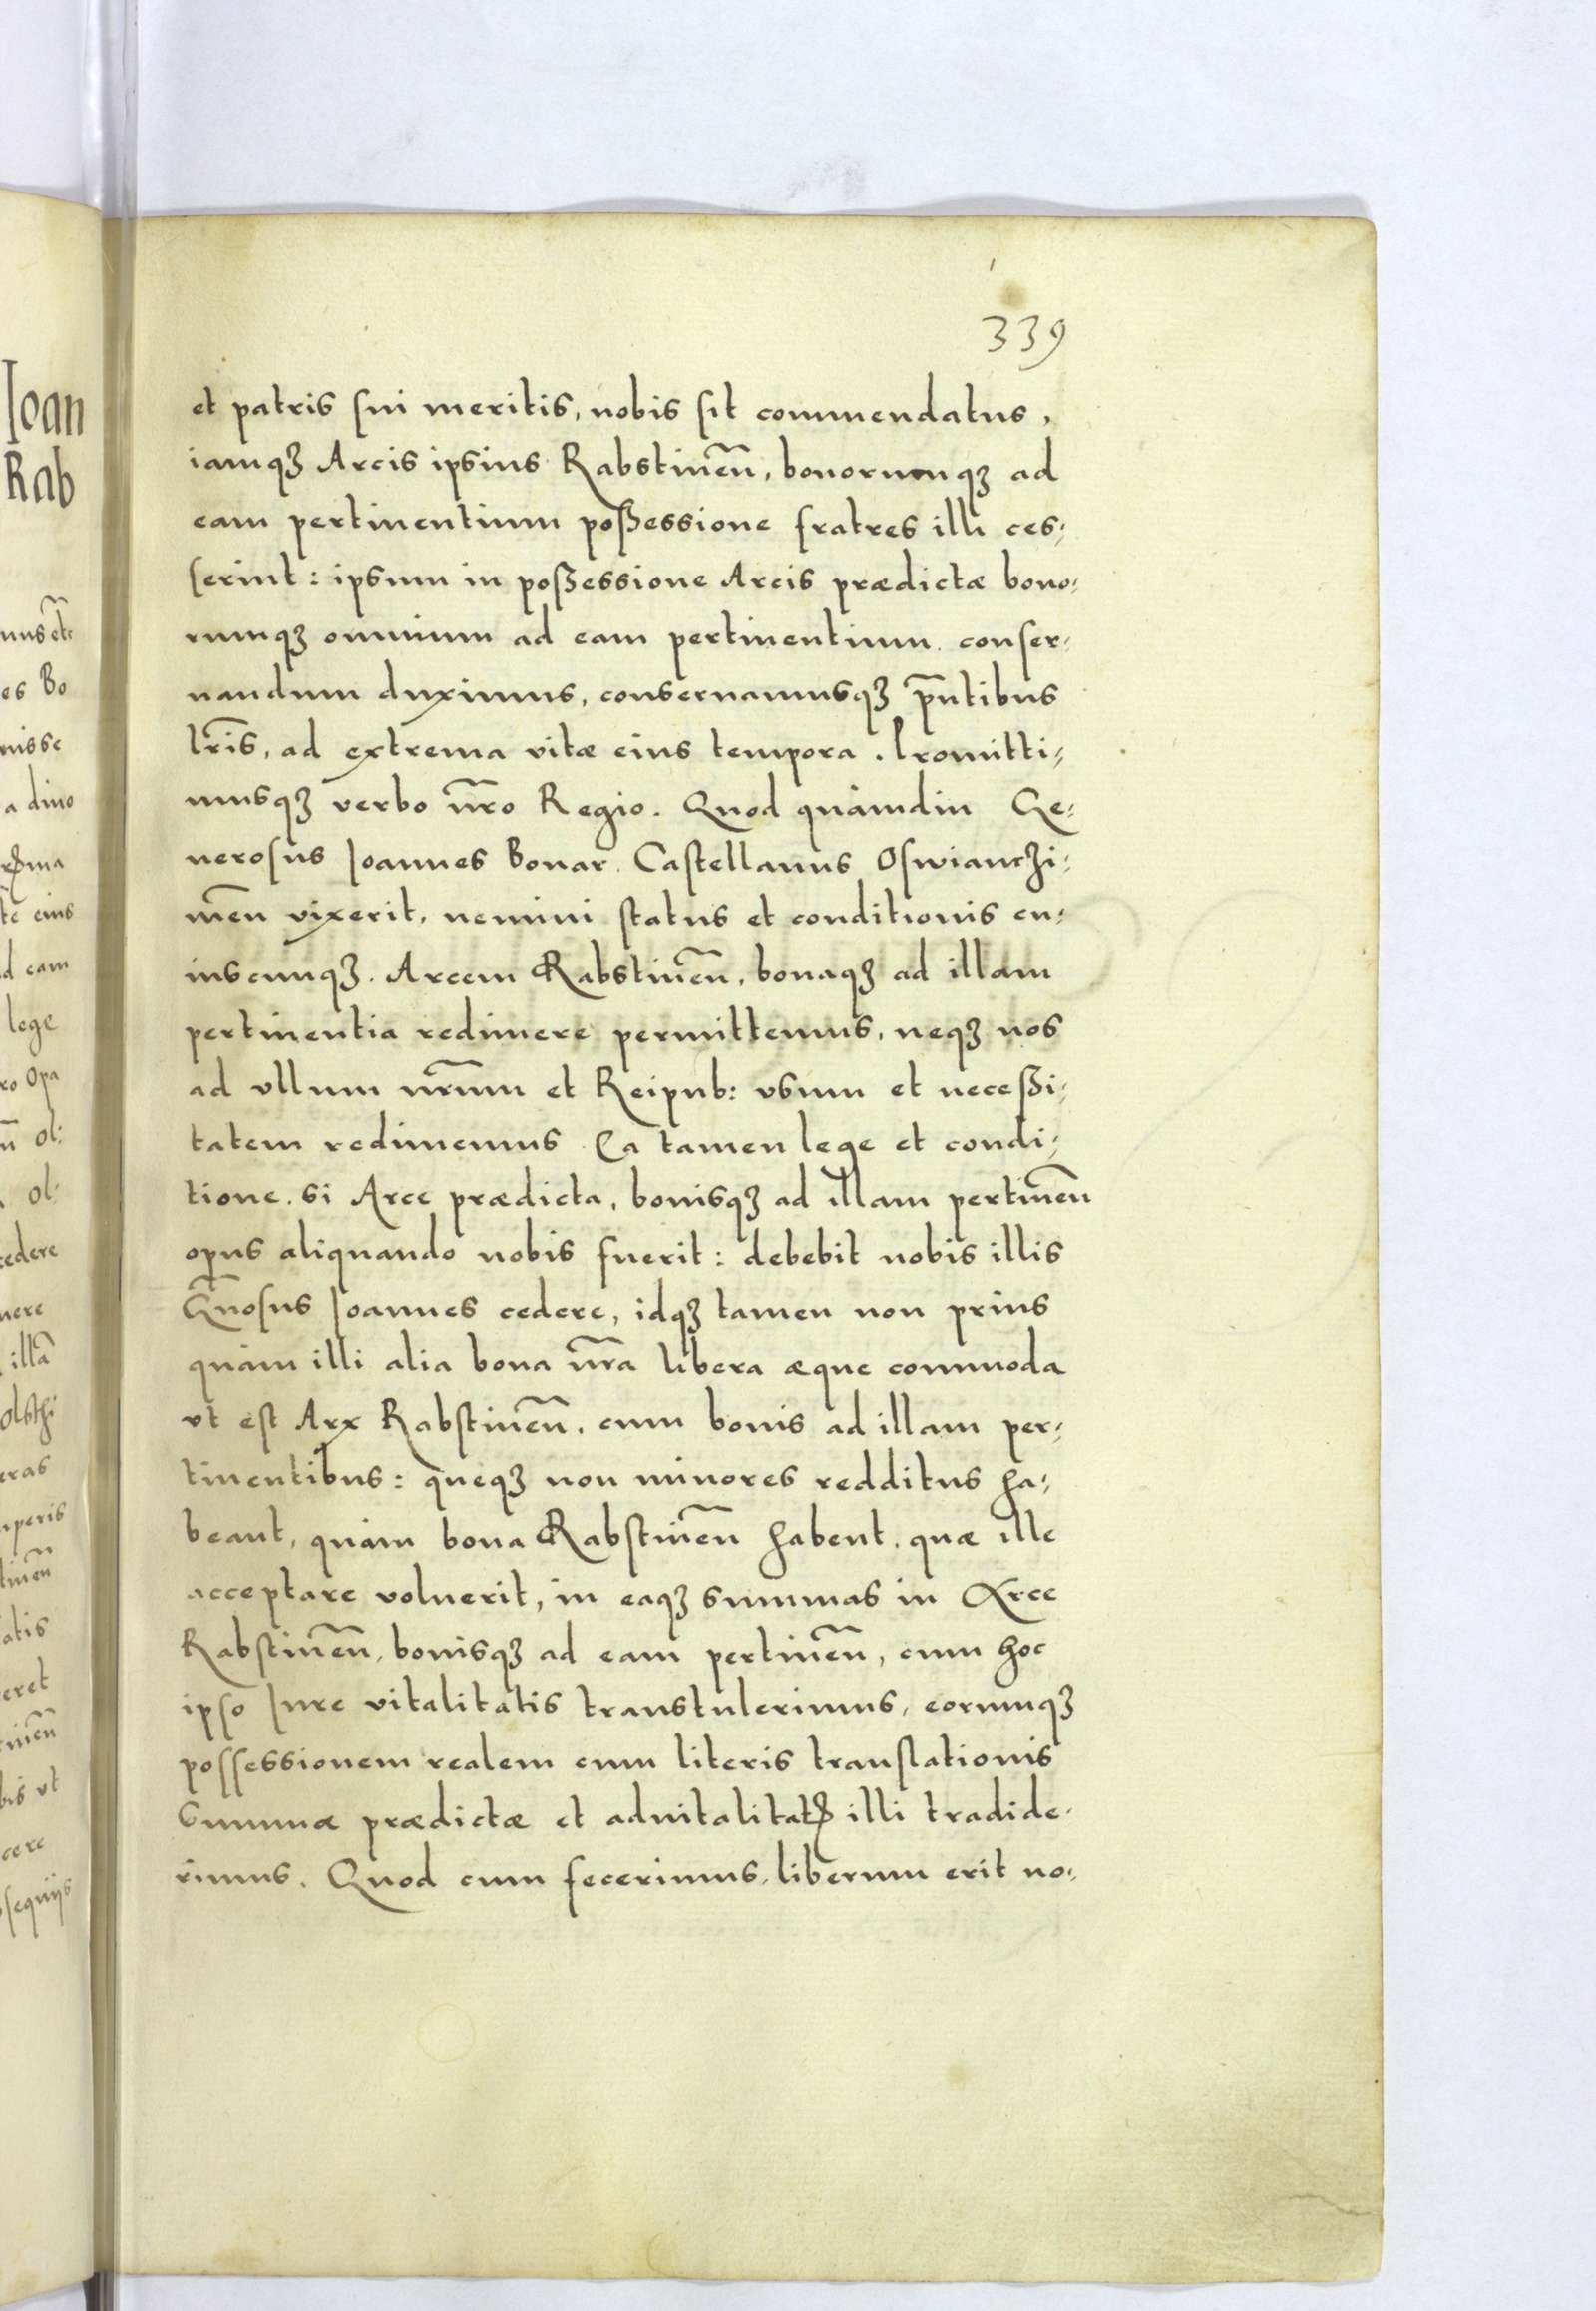 339
et patris sui meritis, nobis sit commendatus,
iamqꝫ Arcis ipsius Rabstineñ, bonorumqꝫ ad
eam pertinentium poßessione fratres illi ces-
serint: ipsum in poßessione Arcis prædictæ bono-
rumqꝫ omnium ad eam pertinentium conser-
uandum duximus, conseruamusqꝫ p̃ntibus
lr̃is, ad extrema vitæ eius tempora. Promitti-
musqꝫ verbo nr̃o Regio. Quod quàmdiu Ge-
nerosus Joannes Bonar Castellanus Oswianczi-
meñ vixerit, nemini status et conditionis cu-
iuscumqꝫ. Arcem Rabstineñ, bonaqꝫ ad illam
pertinentia redimere permittemus, neqꝫ nos
ad vllum nr̃um et Reipub: vsum et neceßi-
tatem redimemus Ea tamen lege et condi-
tione. si Arce prædicta, bonisqꝫ ad illam pertineñ
opus aliquando nobis fuerit: debebit nobis illis
Gñosus Joannes cedere, idqꝫ tamen non prius
quàm illi alia bona nr̃a libera æque commoda
vt est Arx Rabstineñ. cum bonis ad illam per-
tinentibus: queqꝫ non minores redditus ha-
beant, quàm bona Rabstineñ habent. quæ ille
acceptare voluerit, in eaqꝫ summas in Arce
Rabstineñ, bonisqꝫ ad eam pertineñ, cum hoc
ipso Jure vitalitatis transtulerimus, eorumqꝫ
possessionem realem cum literis translationis
Summæ prædictæ et aduitalitatꝭ illi tradide-
rimus. Quod cum fecerimus, liberum erit no-
Joan
Rab
es Bo
nisse
a diuo
eius
d eam
lege
ro Opa
ol:
ol:
cedere
illã
eras
peris
atis
eret
bis vt
cere
sequijs